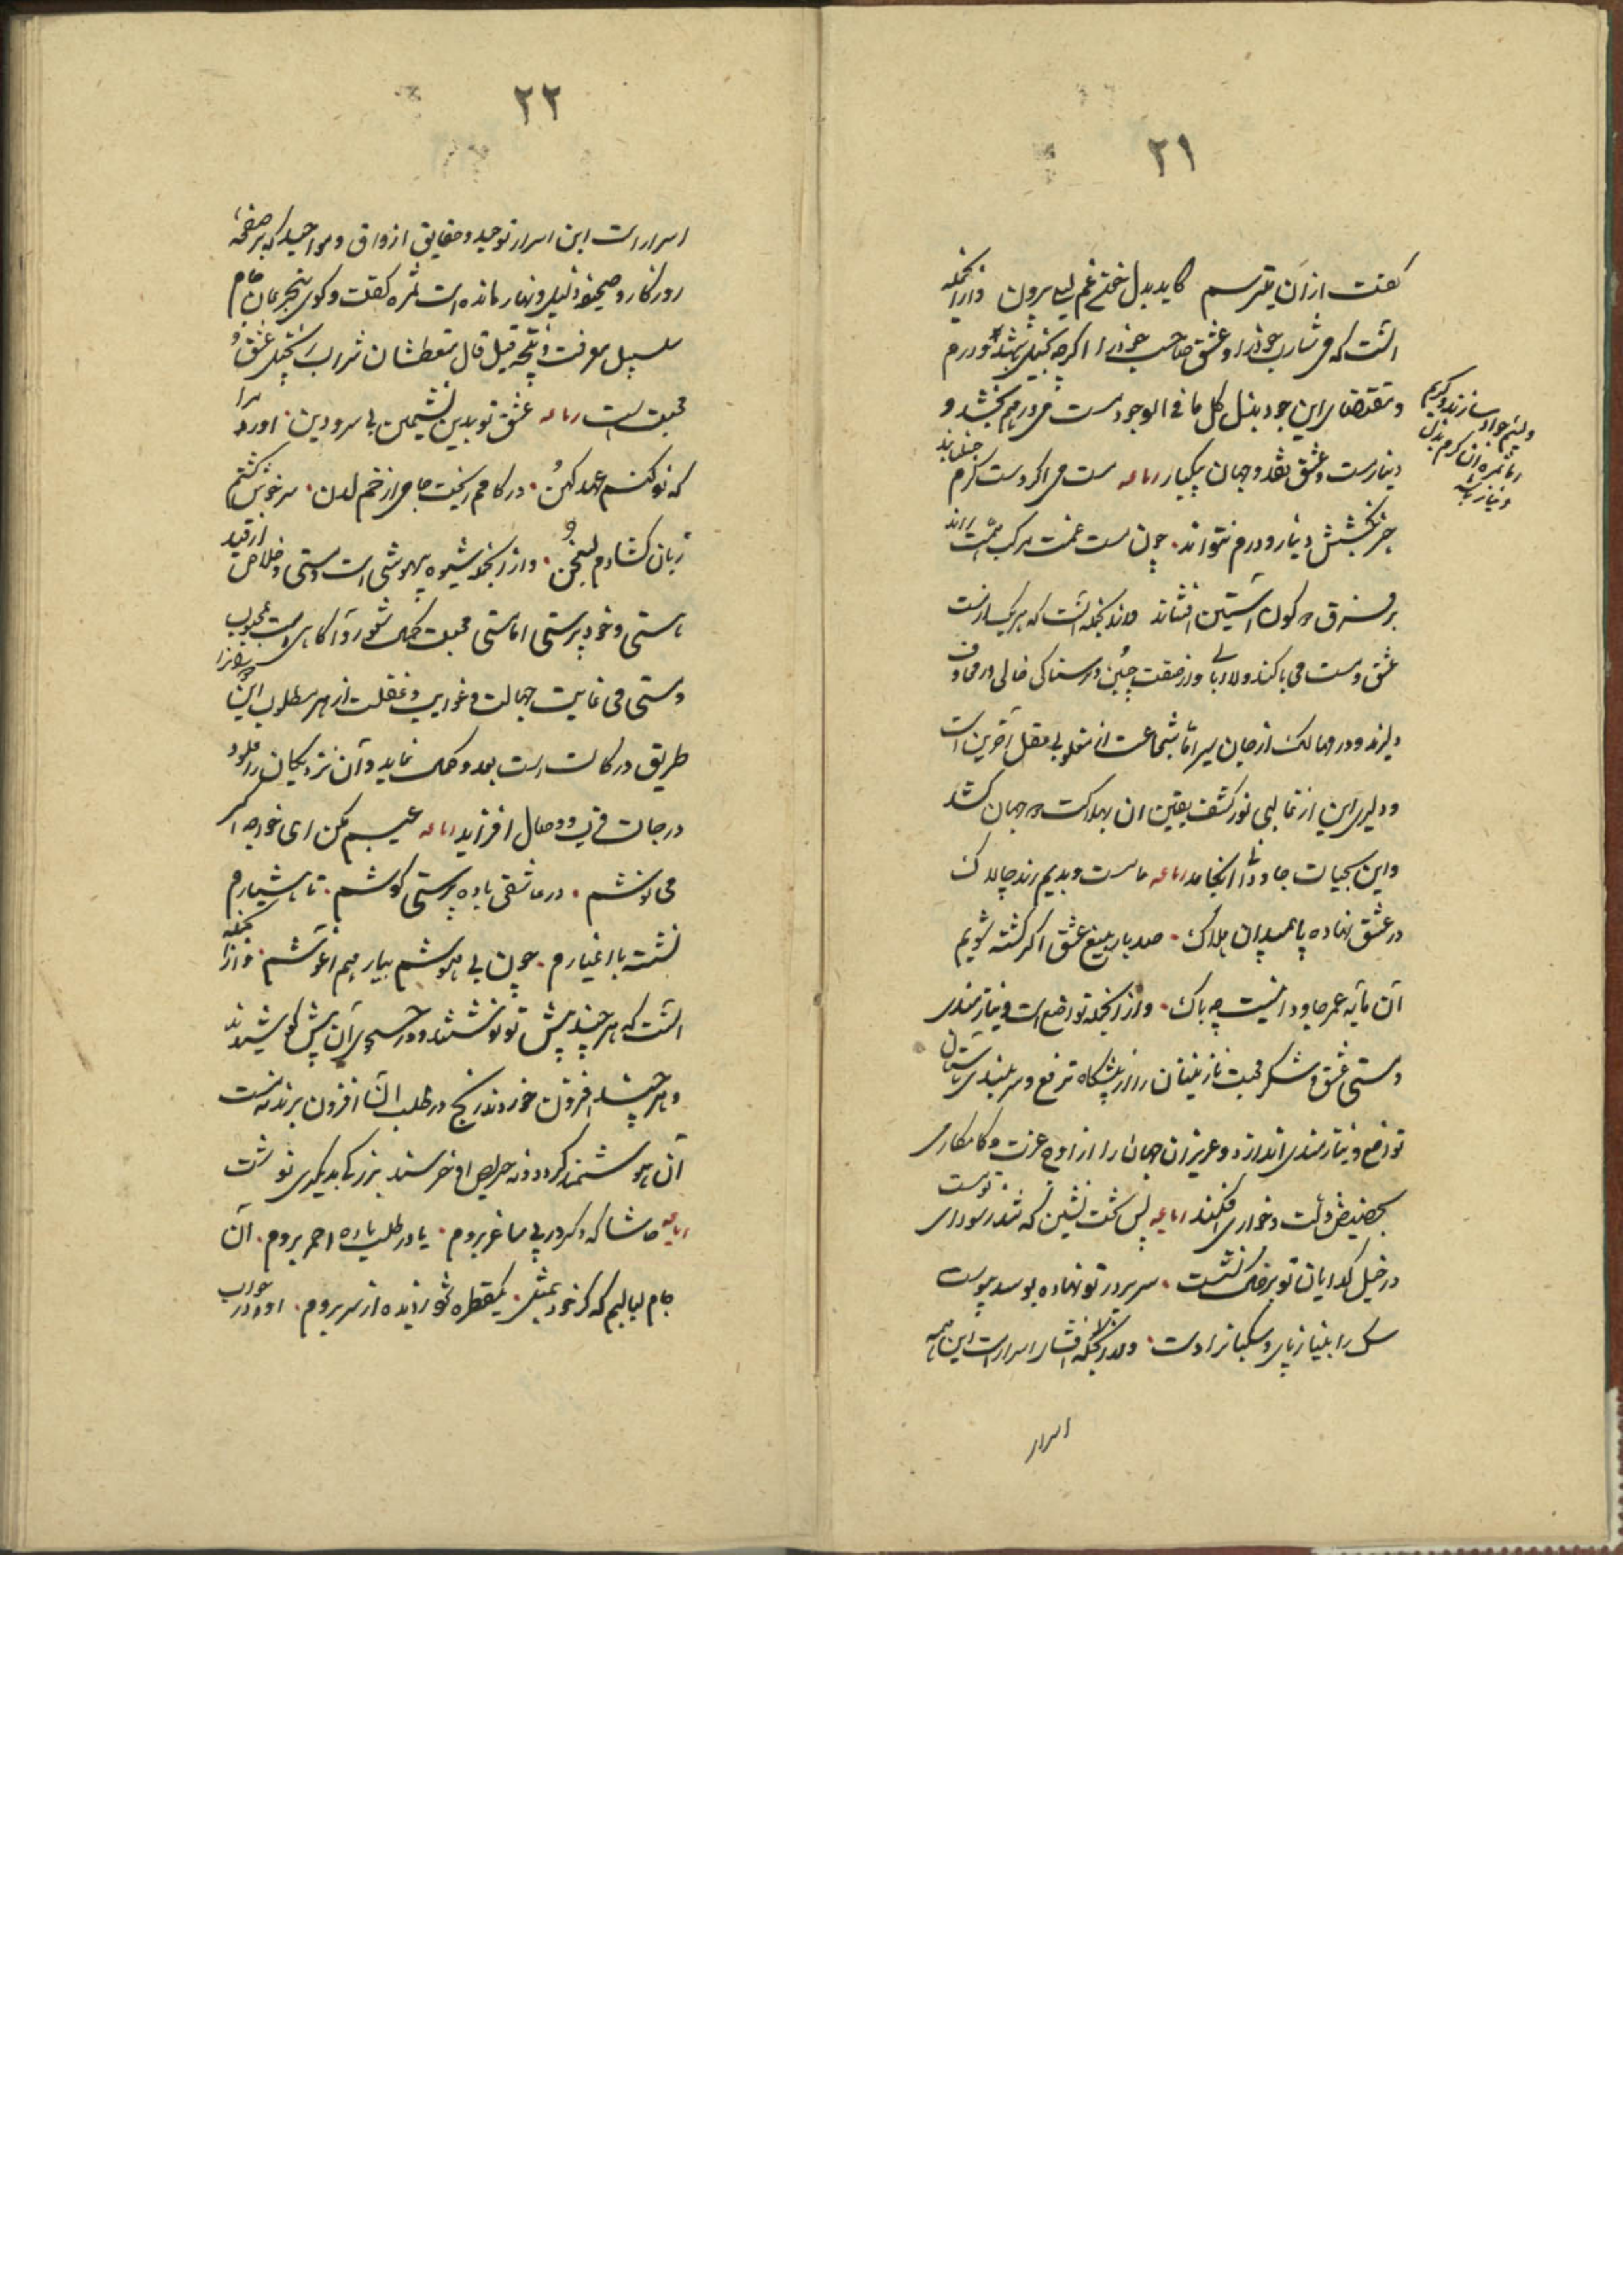 ۲۱
گفت از آن میترسم کاید بدل لختی غم لیلی بیرون و از انجمله
انست که می شارب خود را و عشق صاحب خود را اگرچه بخیل باشد
و مقتضای این جود بذل کل ما فی الوجود مست می درهم بخشد و
دینار مست عشق نقد دو جهان بیکبار رباعیه مست می اگر دست کرم جنباند
جز بخشش دینار و درم نتواند. چون مست غمت مرکب همت راند
بر فرق دو کون آستین افشاند و از انجمله آنست که هر یک از مست
عشق و مست می بی باک کند و لاابالی و از صفت جبن و ترسناکی خالی در مخاوف
دلیرند و در مهالک از جان سیر اما شجاعت از مغلوبی عقل آخرین است
و دلیری این از غالبی نور کشف یقین ان بهلاکت دو جهان کشد
و این بحیات جاودان انجامد رباعیه ما مست و بدیم رند چالاک
در عشق نهاده پا بمیدان هلاک. صد بار بتیغ عشق اگر کشته شویم
آن مایه عمر جاودانیست چه باک. و از انجمله تواضع است و نیازمندی
مستی عشق و سکر محبت نازنینان را از پیشگاه ترفع و سربلندی باستان
تواضع و نیازمندی اندازد و عزیزان جهان را از اوج عزت و کامکاری
بحضیض ذلت و خواری افکند رباعیه بس تخت نشین که شد ز سودای توست
در خیل گدایان تو بر خاک نشست. سر بر در تو نهاده بوسد پیوست
سگ را بنیاز پای و سگبانرا دست. و از انجمله افشاء اسرار است این همه
اسرار
و لئیم جواد سازند و کریم
اما ثمره ان کرم بذل
دینار باشد
۲۲
اسرار است این اسرار توحید و حقایق اذواق و مواجید که بر صفحه
روزگار و صحیفه لیل و نهار مانده است ثمره گفت و گوی متجرعان جام
سلسبیل معرفت و نتیجه قیل و قال متعطشان شراب زنجبیل عشق و
محبت است رباعیه عشق تو بدین نشیمن بی سر و بن. اورد مرا
که نو کنم عهد کهن. در کامم ریخت جامی از خم لدن. سرخوش گشتم
زبان گشادم بسخن. و از انجمله شیوه بیهوشی است و مستی و خلاص از قید
هستی و خود پرستی اما مستی محبت کمال شعور و آگاهی است بمحبوب
و مستی می غایت جهالت و غوایت و غفلت از هر مطلوب این
طریق درکات است بعد و کمال نماید و آن نزدیکان را علو
درجات قرب و وصال افزاید رباعیه عیبم مکن ای خواجه اگر
می نوشم. در عاشقی باده پرستی کوشم. تا هشیارم
نشسته با اغیارم. چون بی هوشم بیار هم اغوشم. و از انجمله
انست که هر چند بیش تو نوشند در جستجوی آن بیش کوشند
و هر چند افزون خورند رنج در طلب آن افزون برند نه مست
آن هوشمند گردد و نه حریص او خرسند بزرگی بدیگری نوشت
رباعیه حاشا که دگر در پی ساغر بروم. یا در طلب باده احمر بروم. آن
جام لبالبم که گر خود بمثل. یک قطره شود زیاده از سر بروم. او در جواب